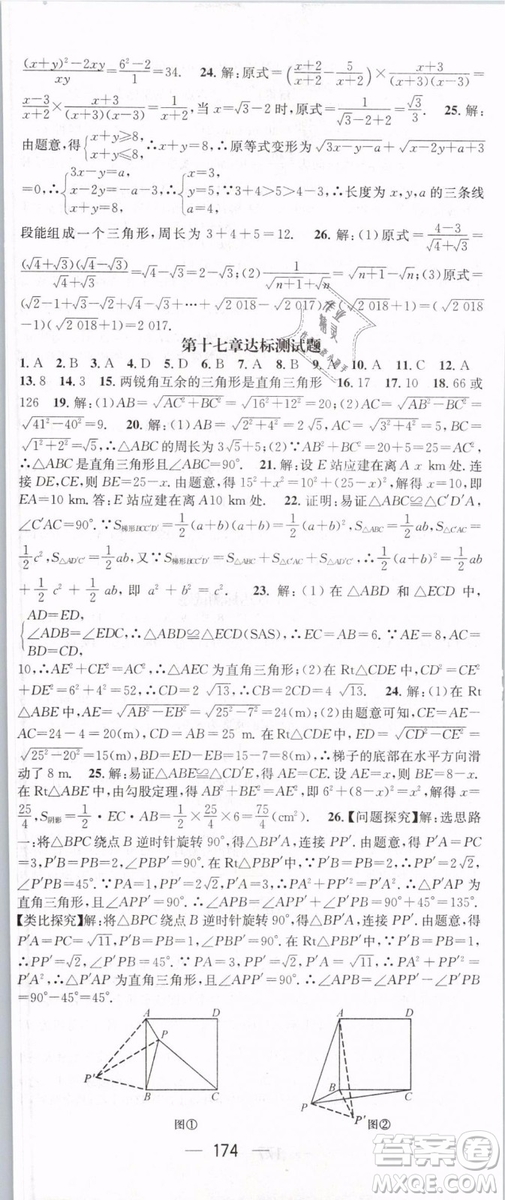 (x+y)²-2xy/xy=6²-2/1=34. 24. 解:原式=(x+2/x+2-5/x+2)×x+3/(x+3)(x-3)=
x-3/x+2×x+3/(x+3)(x-3)=1/x+2,当x=√3-2时,原式=1/√3-2+2=√3/3. 25. 解:
由题意,得{x+y≥8,x+y≤8,∴x+y=8,∴原等式变形为√3x-y-a+√x-2y+a+3
=0,∴{3x-y=a,x-2y=-a-3,x+y=8,∴{x=3,y=5,a=4,∴长度为x,y,a的三条线
段能组成一个三角形,周长为3+4+5=12. 26. 解:(1)原式=4-3/√4+√3=
(√4+√3)(√4-√3)/√4+√3=√4-√3;(2)1/√n+1+√n=√n+1-√n;(3)原式=(√2-1+
√3-√2+√4-√3+…+√2 018-√2 017)×(√2 018+1)=(√2 018-
1)(√2 018+1)=2 017.
第十七章达标测试题
1. A 2. B 3. A 4. D 5. D 6. C 7. D 8. D 9. A 10. A 11. C 12. A
13. 8 14. 3 15. 两锐角互余的三角形是直角三角形 16. 17 17. 10 18. 66或
126 19. 解:(1)AB=√AC²+BC²=√16²+12²=20;(2)AC=√AB²-BC²=
√41²-40²=9. 20. 解:(1)AB=√2²+4²=2√5,AC=√1²+2²=√5,BC=
√3²+4²=5;(2)△ABC是直角三角形.理由:∵AB²+AC²=20+5=25=BC²,
∴△ABC是直角三角形且∠BAC=90°. 21. 解:设E站应建在离A x km处.连
接DE,CE,则DE=CE,∠A=∠B=90°.由题意,得15²+x²=10²+(25-x)²,解得x=10,即
EA=10 km.答:E站应建在离A10 km处. 22. 证明:易证△ABC≌△C'D'A,
∠C'AC=90°.∵S梯形BCC'D'=1/2(a+b)(a+b)=1/2(a+b)²,S△ABC=1/2ab,S△C'AC=
1/2c²,S△AD'C'=1/2ab,又∵S梯形BCC'D'=S△ABC+S△C'AC+S△AD'C',∴1/2(a+b)²=1/2ab
+1/2c²+1/2ab,即a²+b²=c². 23. 解:(1)在△ABD和△ECD中,
{AD=ED,∠ADB=∠EDC,BD=CD,∴△ABD≌△ECD(SAS),∴EC=AB=6,∵AE=2AD=8,AC=
10,∴AE²+CE²=AC²,∴△AEC为直角三角形;(2)在Rt△CDE中,CD²=CE²
+DE²=6²+4²=52,∴CD=2√13,∴CB=2CD=4√13. 24. 解:在Rt
△ABE中,AE=√AB²-EB²=√25²-7²=24(m).由题意可知,CE=AE-
AC=24-4=20(m).在Rt△CDE中,∵CD=AB=25 m,∴DE=√CD²-CE²=
√25²-20²=15(m),∴BD=DE-BE=15-7=8(m),∴梯子的底部在水平方向滑
动了8 m. 25. 解:易证△ABC≌△CDE,∴EC=AE.设EC=AE=x,则BE=8
-x.在Rt△ABE中,由勾股定理,得AB²+BE²=AE²,即6²+(8-x)²=x²,解得x=
25/4,S阴影=1/2·EC·AB=1/2×25/4×6=75/4(cm²). 26.【问题探究】解:选思路
一:将△BPC绕点B逆时针旋转90°,得△BP'A,连接PP'.由题意,得P'A=PC
=3,P'B=PB=2,∠P'BP=90°.在Rt△PBP'中,∵P'B=PB=2,∴PP'=2√2,
∠P'PB=45°.∵PA=1,P'A=3,PP'=2√2,∴PA²+PP'²=P'A²,∴△APP'为
直角三角形,∠APP'=90°,∴∠APB=∠APP'+∠P'PB=90°+45°=135°.
【类比探究】解:将△BPC绕点B逆时针旋转90°,得△BP'A,连接PP'.由题意,得
P'A=PC=√11,P'B=PB=1,∠P'BP=90°.在Rt△PBP'中,∵P'B=PB=1,
∴PP'=√2,∠P'PB=45°.∵PA=3,P'A=√11,PP'=√2,∴PA²+PP'²=
P'A²,∴△APP'为直角三角形,∠APP'=90°,∴∠APB=∠APP'-∠P'PB
=90°-45°=45°.
A D A D
P
P'
B C B C
P P'
图① 图②
174
答案圈
MXQE.COM